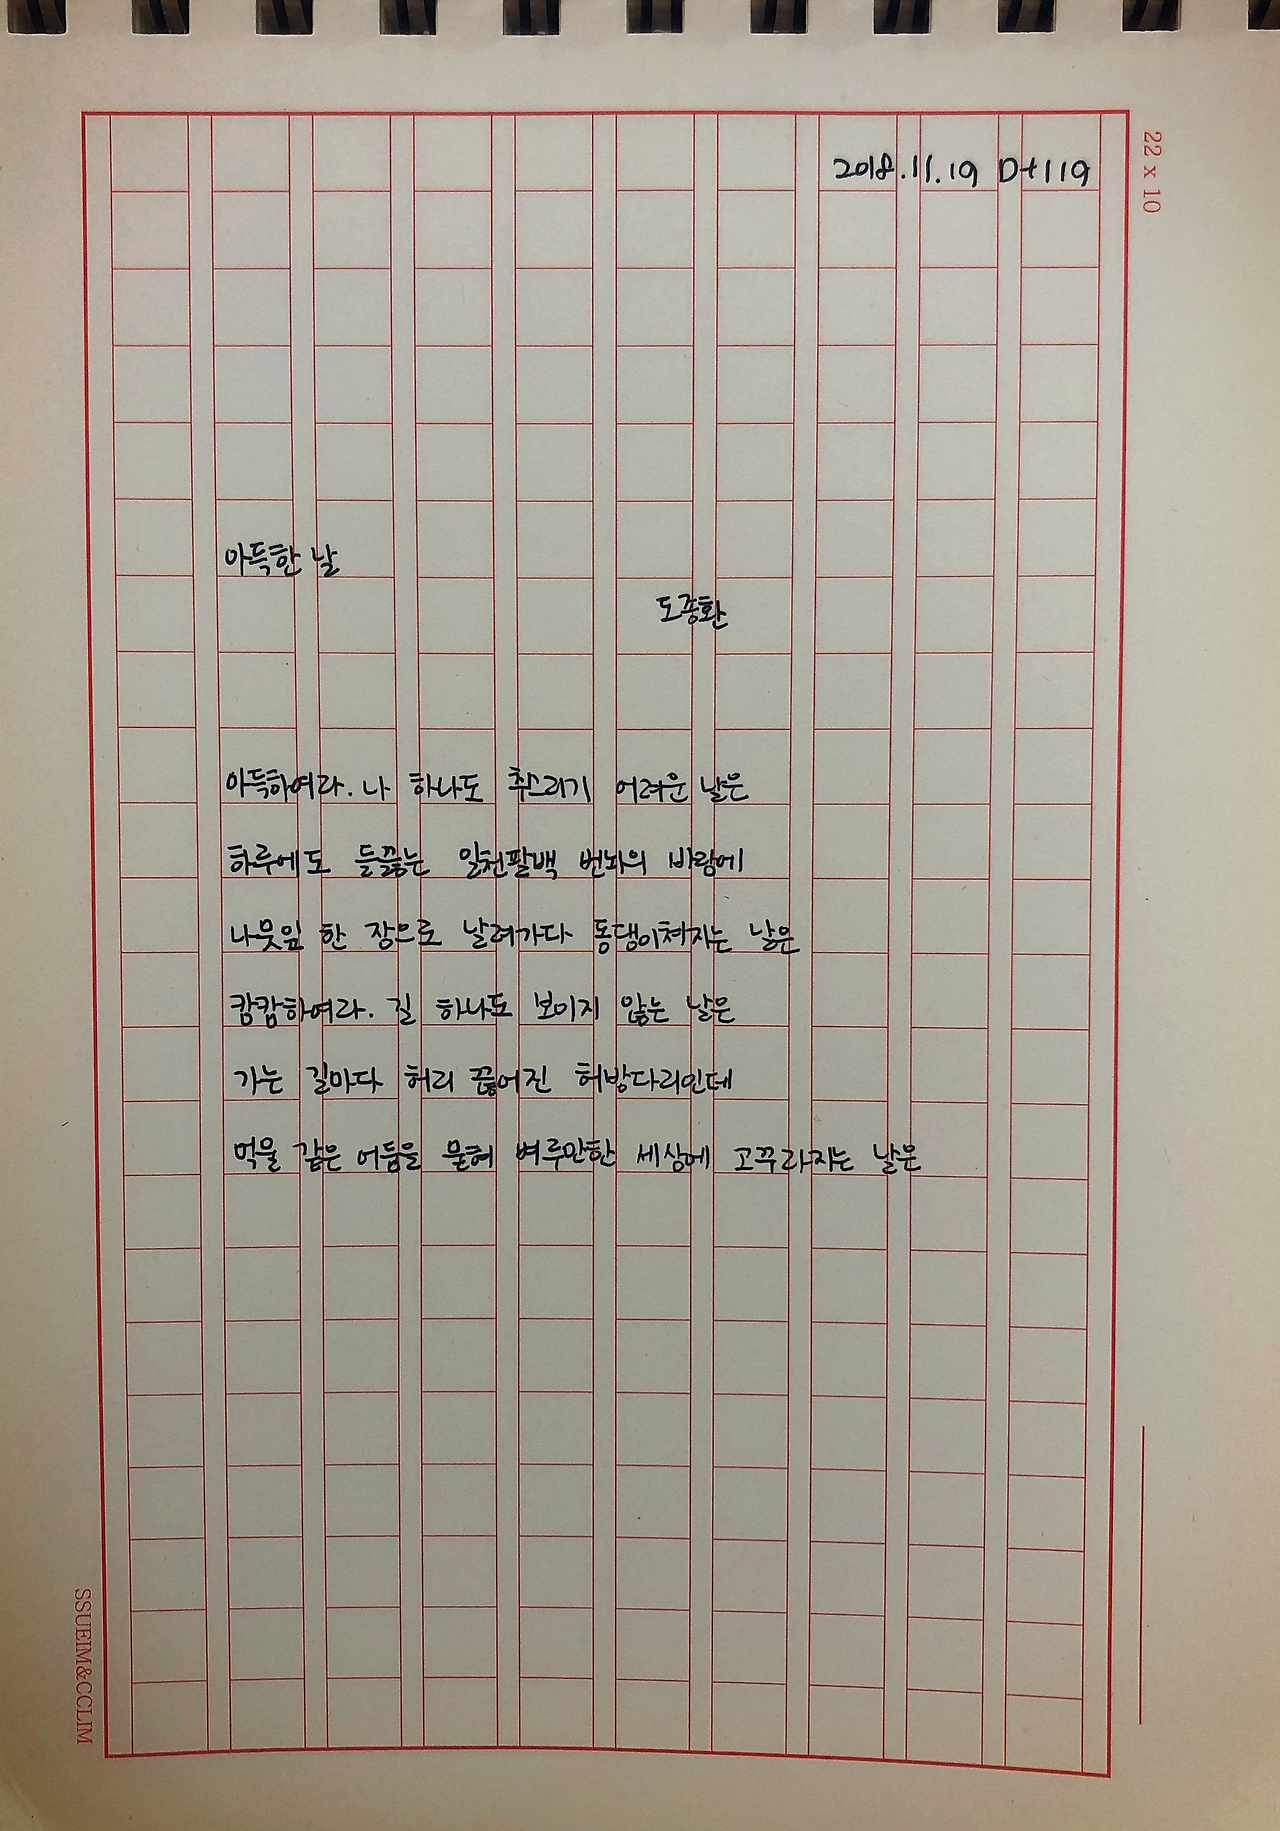 2018.11.19 D+119
22 x 10
아득한 날
도종환
아득하여라. 나 하나도 추스리기 어려운 날은
하루에도 들끓는 일천팔백 번뇌의 바람에
나뭇잎 한 장으로 날려가다 동댕이쳐지는 날은
캄캄하여라. 길 하나도 보이지 않는 날은
가는 길마다 허리 끊어진 허방다리인데
먹물 같은 어둠을 묻혀 벼루만한 세상에 고꾸라지는 날은
SSUEIM&CCLIM